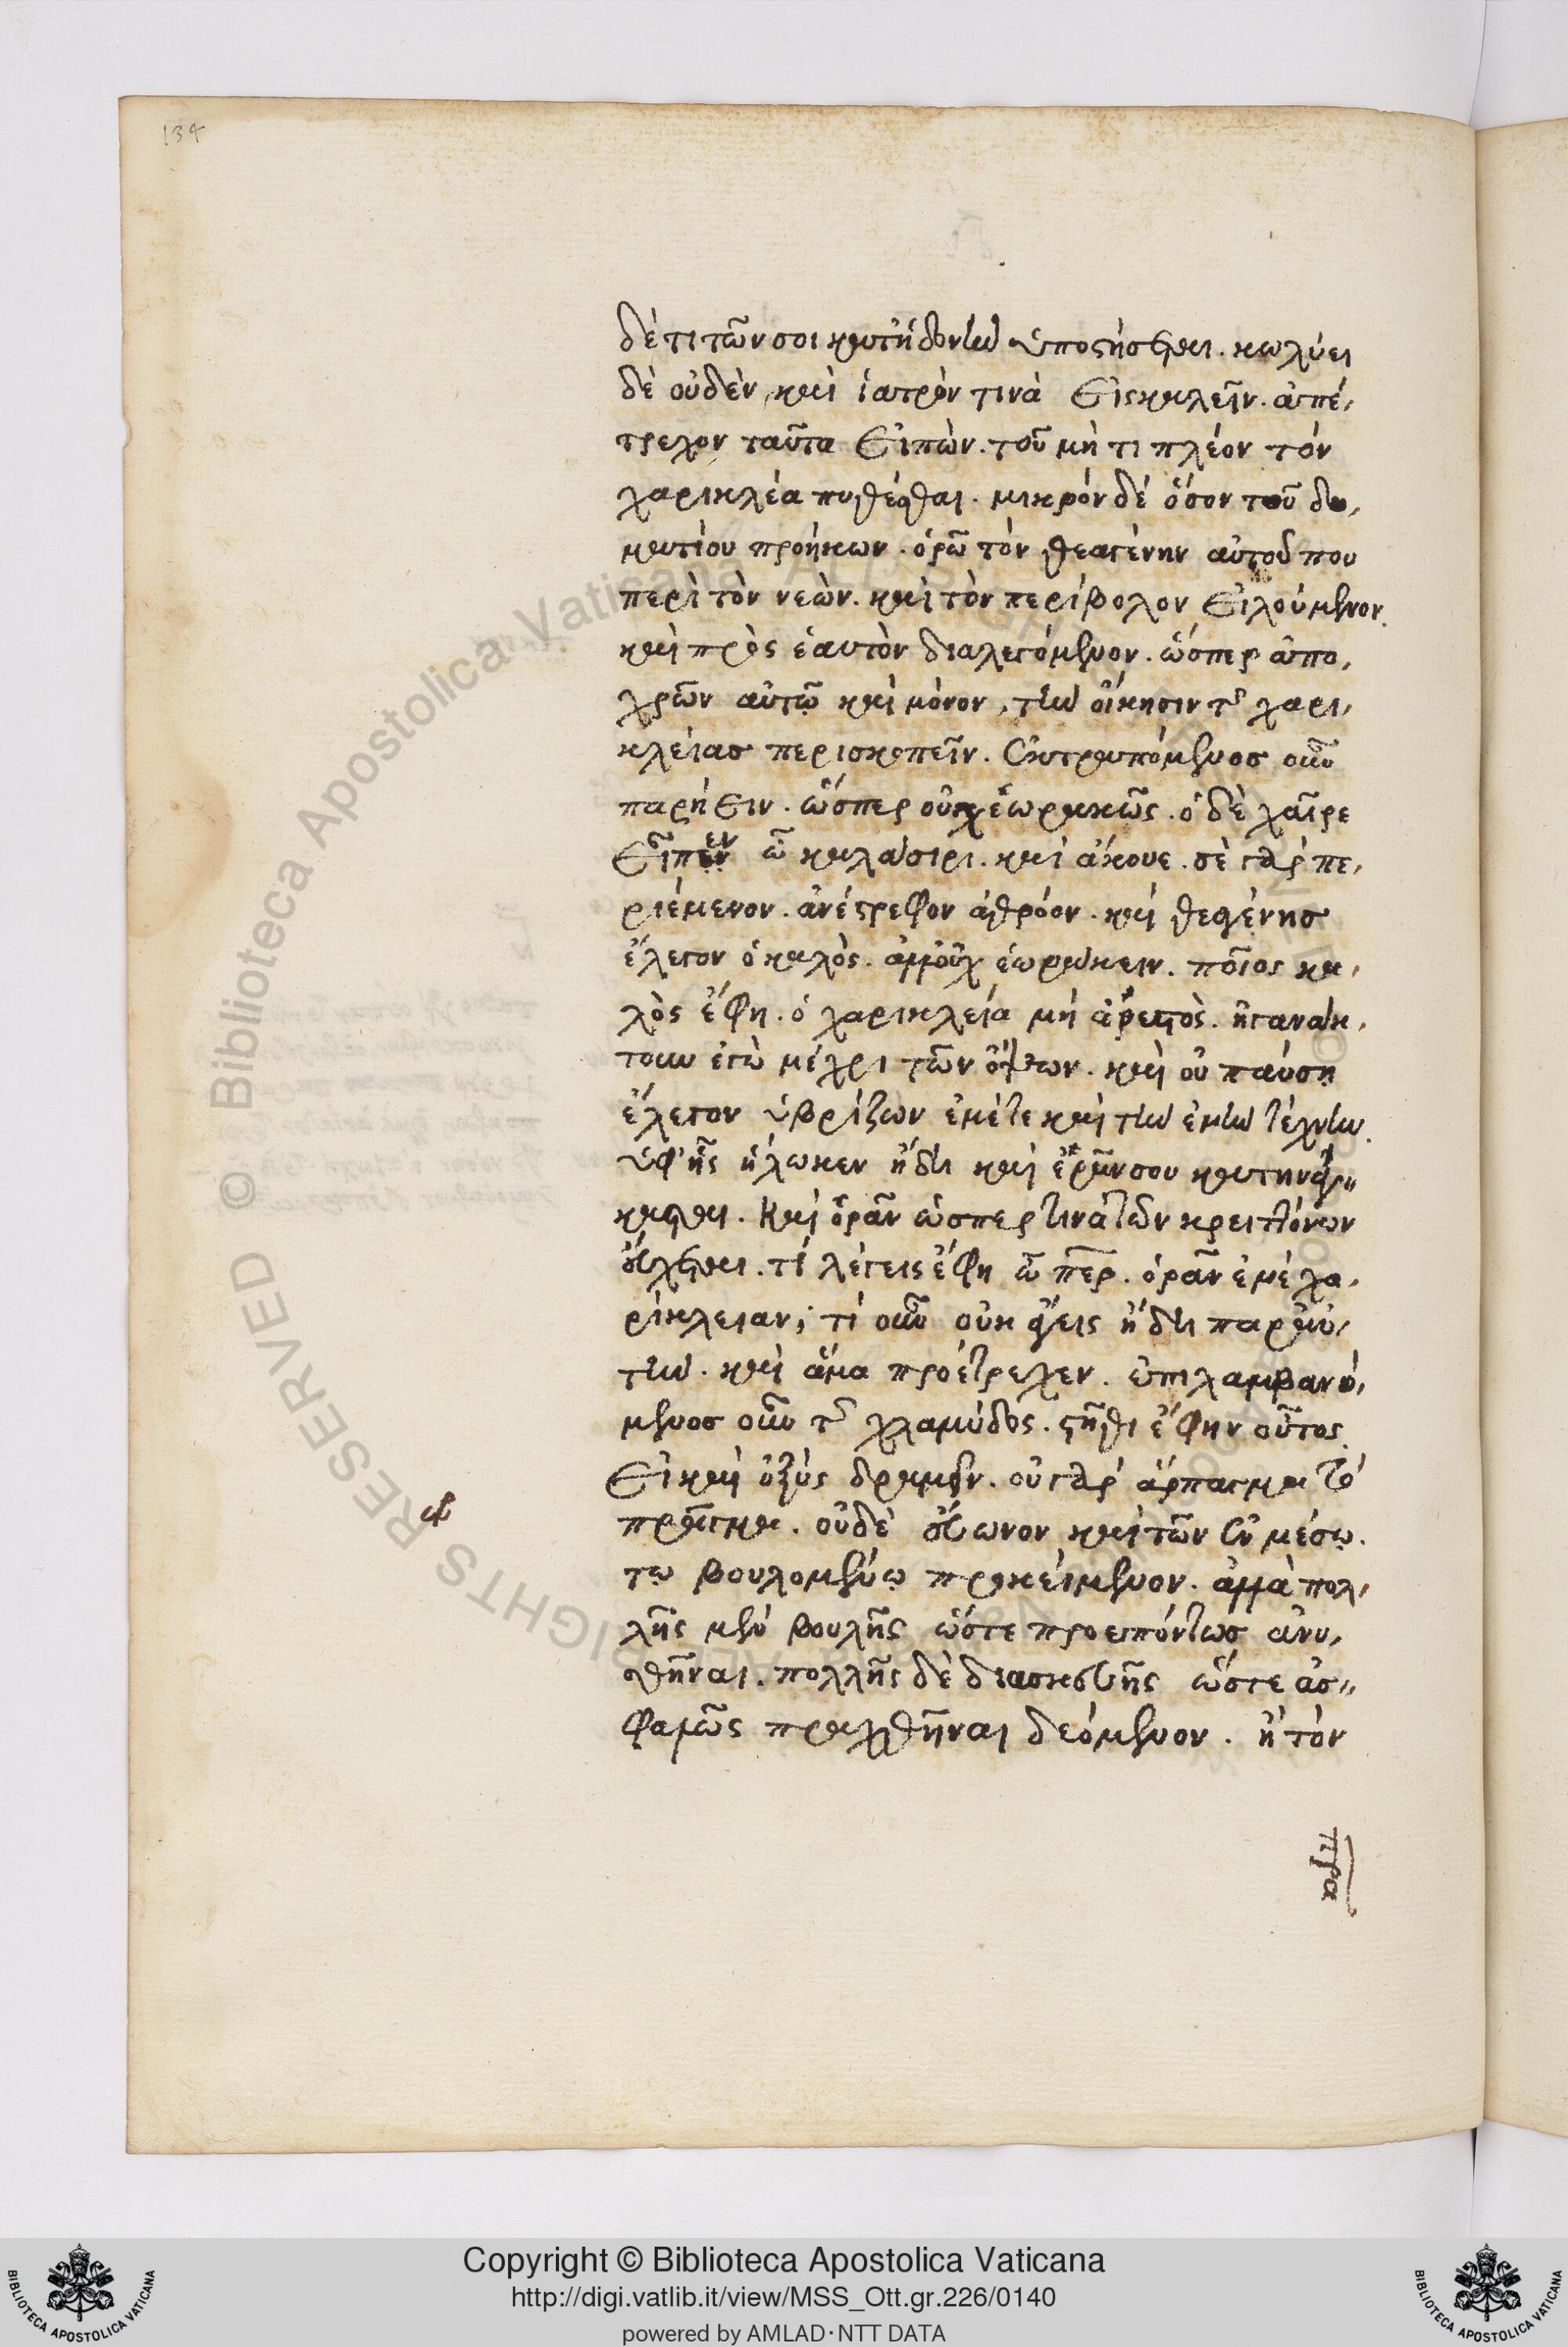 134
δέ τι τῶν σοι καθ' ἡδονὴν ὑποστήσεται. κωλύει
δὲ οὐδὲν, καὶ ἰατρόν τινὰ εἰσκαλεῖν. ἀπέ,
τρεχον ταῦτα εἰπὼν. τοῦ μή τι πλέον τὸν
χαρικλέα πυθέσθαι. μικρὸν δὲ ὅσον τοῦ δω,
ματίου προήκων. ὁρῶ τὸν θεαγένην αὐτοῦ που
περὶ τὸν νεὼν. καὶ τὸν περίβολον εἰλούμενον.
καὶ πρὸς ἑαυτὸν διαλεγόμενον. ὥσπερ ἀπο,
χρῶν αὐτῷ καὶ μόνον, τὴν οἴκησιν τῆς χαρι,
κλείας περισκοπεῖν. ἐκτραπόμενος οὖν
παρῄειν. ὥσπερ οὐχ ἑωρακῶς. ὁ δὲ χαῖρε
εἶπεν ὦ καλάσιρι. καὶ ἄκουε. σὲ γὰρ πε,
ριέμενον. ἀνέστρεφον ἀθρόον. καὶ θεαγένης
ἔλεγον ὁ καλὸς. ἀλλ' οὐχ ἑωράκειν. ποῖος κα,
λὸς ἔφη. ὁ χαρικλεία μὴ ἀρεστὸς. ἠγανάκ,
τουν ἐγὼ μέχρι τῶν ὄντων. καὶ οὐ παύσῃ
ἔλεγον ὑβρίζων ἐμέ τε καὶ τὴν ἐμὴν τέχνην.
ὑφ' ἧς ἥλωκεν ἤδη καὶ ἐρᾶν σου κατηνάγ,,
κασται. καὶ ὁρᾶν ὥσπερ τινὰ τῶν κρειττόνων
εὔχεται. τί λέγεις ἔφη ὦ πάτερ. ὁρᾶν ἐμὲ χα,
ρίκλειαν; τί οὖν οὐκ ἄγεις ἤδη παρ' αὐ,
τὴν. καὶ ἅμα προέτρεχεν. ἐπιλαμβανό,
μενος οὖν τῆς χλαμύδος. στῆθι ἔφην οὗτος.
εἰ καὶ ὀξύς δραμεῖν. οὐ γὰρ ἅρπαγμα τὸ
πρᾶγμα. οὐδὲ εὔωνον καὶ τῶν ἐν μέσῳ.
τῳ βουλομένῳ προκείμενον. ἀλλὰ πολ,
λῆς μὲν βουλῆς ὥστε προειπόντως ἀνυ,
σθῆναι. πολλῆς δὲ διασκευῆς ὥστε ἀσ,,
φαλῶς πραχθῆναι δεόμενον. ἢ τὸν
πρα
Copyright © Biblioteca Apostolica Vaticana
http://digi.vatlib.it/view/MSS_Ott.gr.226/0140
powered by AMLAD·NTT DATA